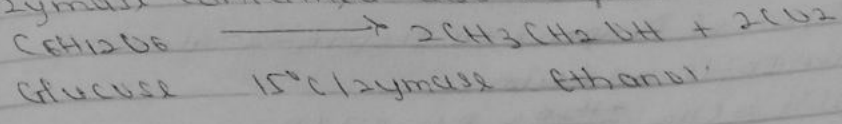 C6H12O6 → 2CH3CH2OH + 2CO2
Glucose 15°C/zymase Ethanol.